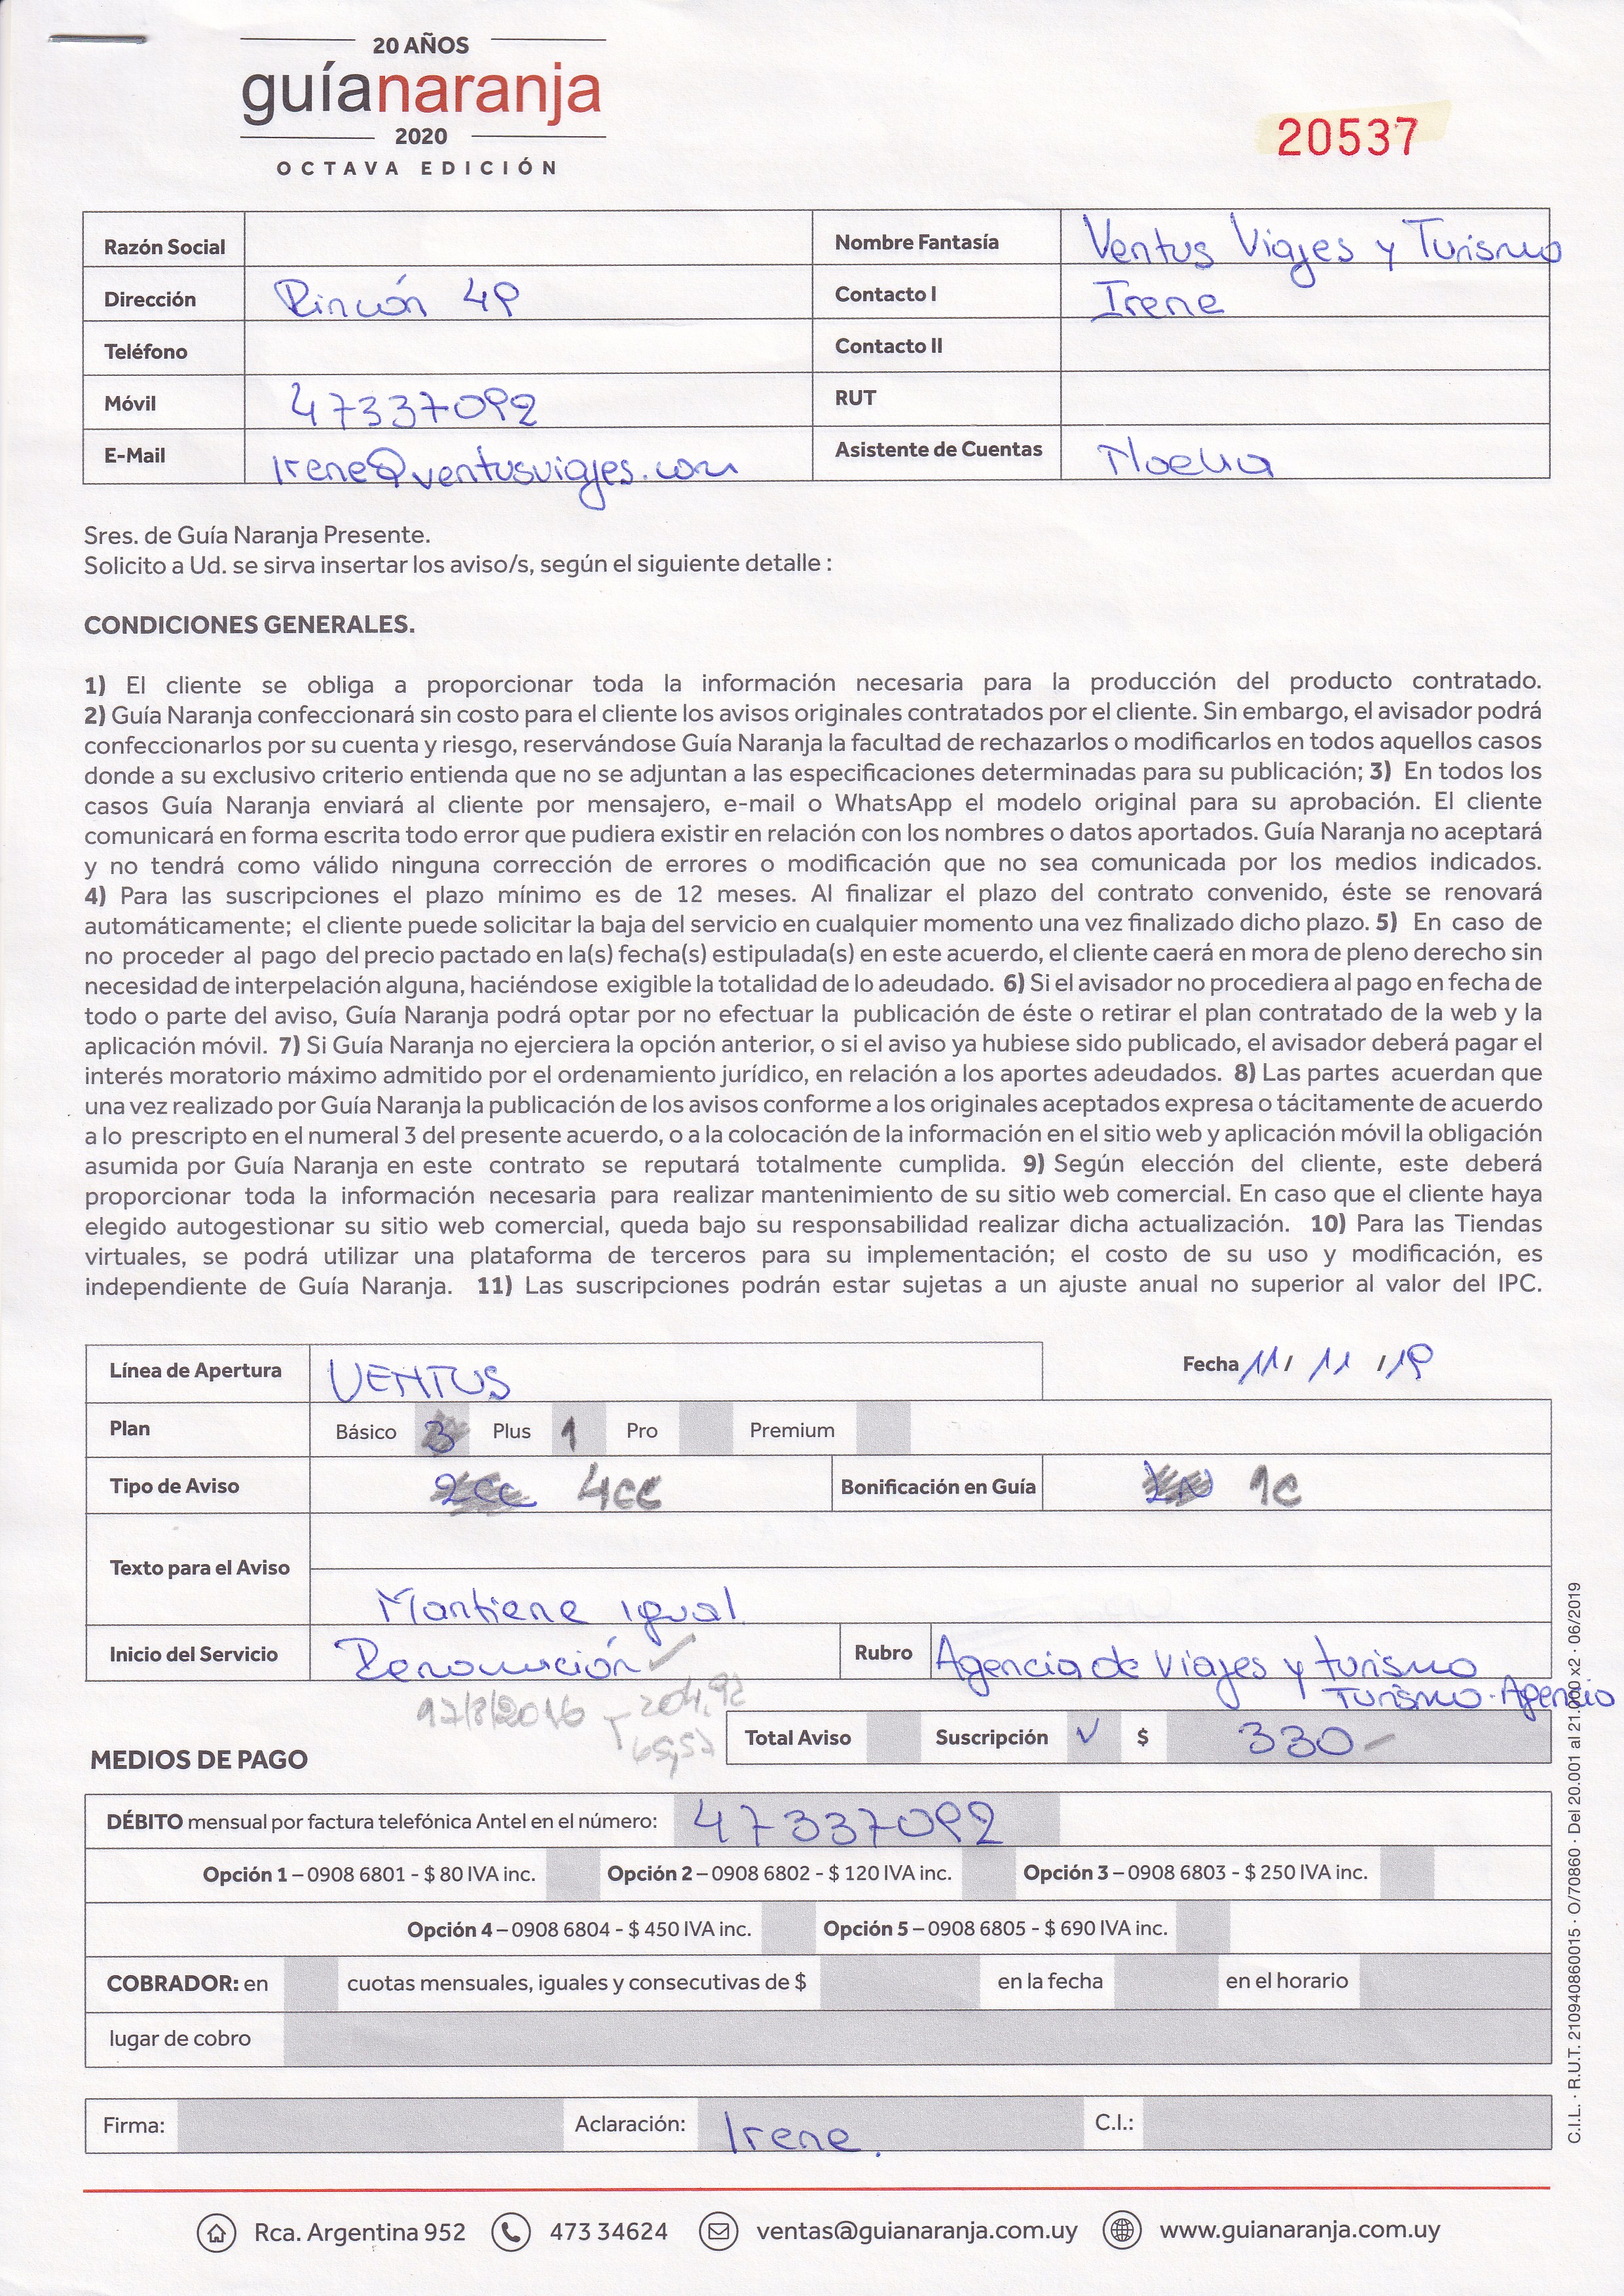 20 AÑOS
guíanaranja
2020
OCTAVA EDICIÓN
20537
Razón Social
Nombre Fantasía Ventus Viajes y Turismo
Dirección Rincón 49
Contacto I Irene
Teléfono
Contacto II
Móvil 47337092
RUT
E-Mail Irene@ventusviajes.com
Asistente de Cuentas Noelia
Sres. de Guía Naranja Presente.
Solicito a Ud. se sirva insertar los aviso/s, según el siguiente detalle :
CONDICIONES GENERALES.
1) El cliente se obliga a proporcionar toda la información necesaria para la producción del producto contratado.
2) Guía Naranja confeccionará sin costo para el cliente los avisos originales contratados por el cliente. Sin embargo, el avisador podrá
confeccionarlos por su cuenta y riesgo, reservándose Guía Naranja la facultad de rechazarlos o modificarlos en todos aquellos casos
donde a su exclusivo criterio entienda que no se adjuntan a las especificaciones determinadas para su publicación; 3) En todos los
casos Guía Naranja enviará al cliente por mensajero, e-mail o WhatsApp el modelo original para su aprobación. El cliente
comunicará en forma escrita todo error que pudiera existir en relación con los nombres o datos aportados. Guía Naranja no aceptará
y no tendrá como válido ninguna corrección de errores o modificación que no sea comunicada por los medios indicados.
4) Para las suscripciones el plazo mínimo es de 12 meses. Al finalizar el plazo del contrato convenido, éste se renovará
automáticamente; el cliente puede solicitar la baja del servicio en cualquier momento una vez finalizado dicho plazo. 5) En caso de
no proceder al pago del precio pactado en la(s) fecha(s) estipulada(s) en este acuerdo, el cliente caerá en mora de pleno derecho sin
necesidad de interpelación alguna, haciéndose exigible la totalidad de lo adeudado. 6) Si el avisador no procediera al pago en fecha de
todo o parte del aviso, Guía Naranja podrá optar por no efectuar la publicación de éste o retirar el plan contratado de la web y la
aplicación móvil. 7) Si Guía Naranja no ejerciera la opción anterior, o si el aviso ya hubiese sido publicado, el avisador deberá pagar el
interés moratorio máximo admitido por el ordenamiento jurídico, en relación a los aportes adeudados. 8) Las partes acuerdan que
una vez realizado por Guía Naranja la publicación de los avisos conforme a los originales aceptados expresa o tácitamente de acuerdo
a lo prescripto en el numeral 3 del presente acuerdo, o a la colocación de la información en el sitio web y aplicación móvil la obligación
asumida por Guía Naranja en este contrato se reputará totalmente cumplida. 9) Según elección del cliente, este deberá
proporcionar toda la información necesaria para realizar mantenimiento de su sitio web comercial. En caso que el cliente haya
elegido autogestionar su sitio web comercial, queda bajo su responsabilidad realizar dicha actualización. 10) Para las Tiendas
virtuales, se podrá utilizar una plataforma de terceros para su implementación; el costo de su uso y modificación, es
independiente de Guía Naranja. 11) Las suscripciones podrán estar sujetas a un ajuste anual no superior al valor del IPC.
Línea de Apertura VENTUS
Fecha 11/ 11 /19
Plan Básico 3 Plus 1 Pro Premium
Tipo de Aviso 2cc 4cc Bonificación en Guía 1c
Texto para el Aviso
Mantiene igual
Inicio del Servicio Renovación Rubro Agencia de Viajes y turismo
Turismo-Agencia
17/8/2016 204,92
65,57
Total Aviso Suscripción ✓ $ 330-
MEDIOS DE PAGO
DÉBITO mensual por factura telefónica Antel en el número: 47337092
Opción 1 – 0908 6801 - $ 80 IVA inc. Opción 2 – 0908 6802 - $ 120 IVA inc. Opción 3 – 0908 6803 - $ 250 IVA inc.
Opción 4 – 0908 6804 - $ 450 IVA inc. Opción 5 – 0908 6805 - $ 690 IVA inc.
COBRADOR: en cuotas mensuales, iguales y consecutivas de $ en la fecha en el horario
lugar de cobro
Firma: Aclaración: Irene. C.I.:
C.I.L. · R.U.T. 210940860015 · O/70860 · Del 20.001 al 21.000 x2 · 06/2019
Rca. Argentina 952 473 34624 ventas@guianaranja.com.uy www.guianaranja.com.uy